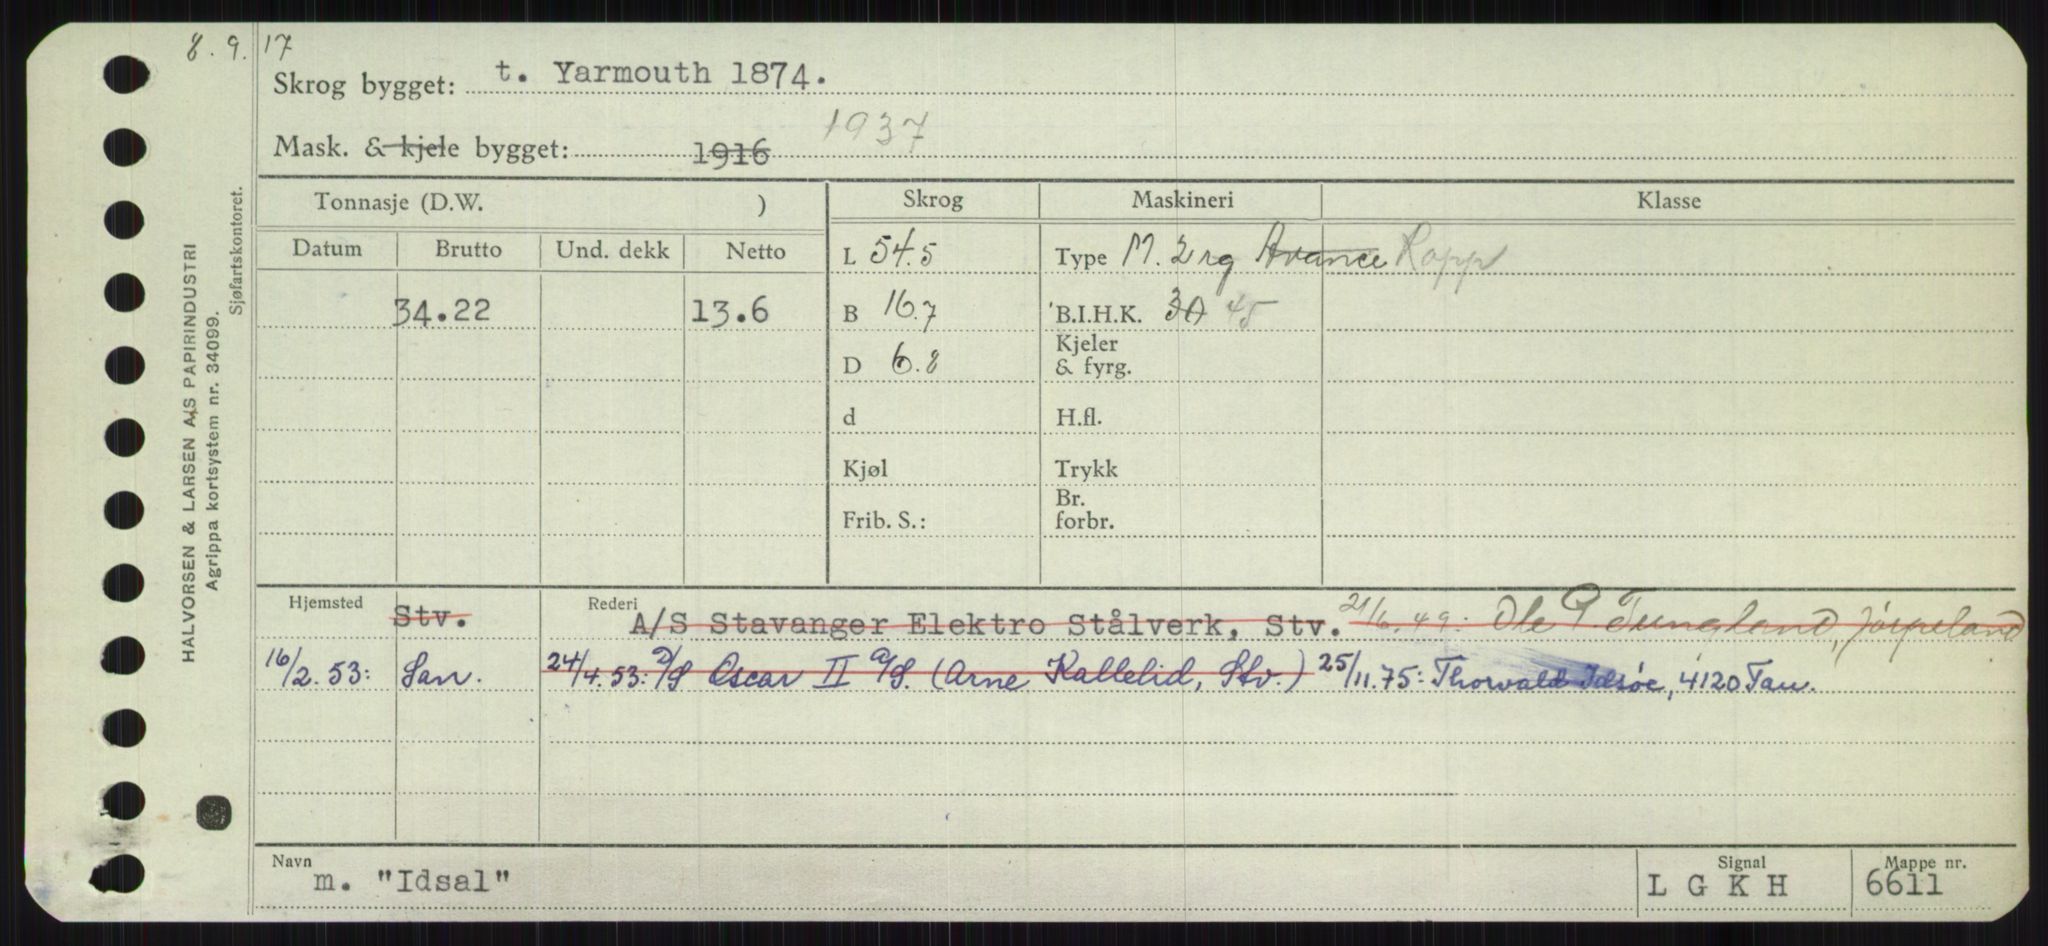 8. 9. 17
Skrog bygget: t. Yarmouth 1874.
Mask. & kjele bygget: 1916 1937
Tonnasje (D.W. ) Skrog Maskineri Klasse
Datum Brutto Und. dekk Netto
L 54.5 Type M. 2 rg Avance Rapp
34.22 13.6 B 16.7 B.I.H.K. 30 45
D 6.8 Kjeler & fyrg.
d H.fl.
Kjøl Trykk
Frib. S.: Br. forbr.
Hjemsted Stv. Rederi A/S Stavanger Elektro Stålverk, Stv. 21/6.49: Ole P. Tungland, Jørpeland
16/2.53: San. 24/4.53: D/S Oscar II A/S. (Arne Kallelid, Stv.) 25/11.75: Thorvald Idsøe, 4120 Tau.
Navn m. "Idsal" Signal L G K H Mappe nr. 6611
HALVORSEN & LARSEN A/S PAPIRINDUSTRI
Agrippa kortsystem nr. 34099.
Sjøfartskontoret.